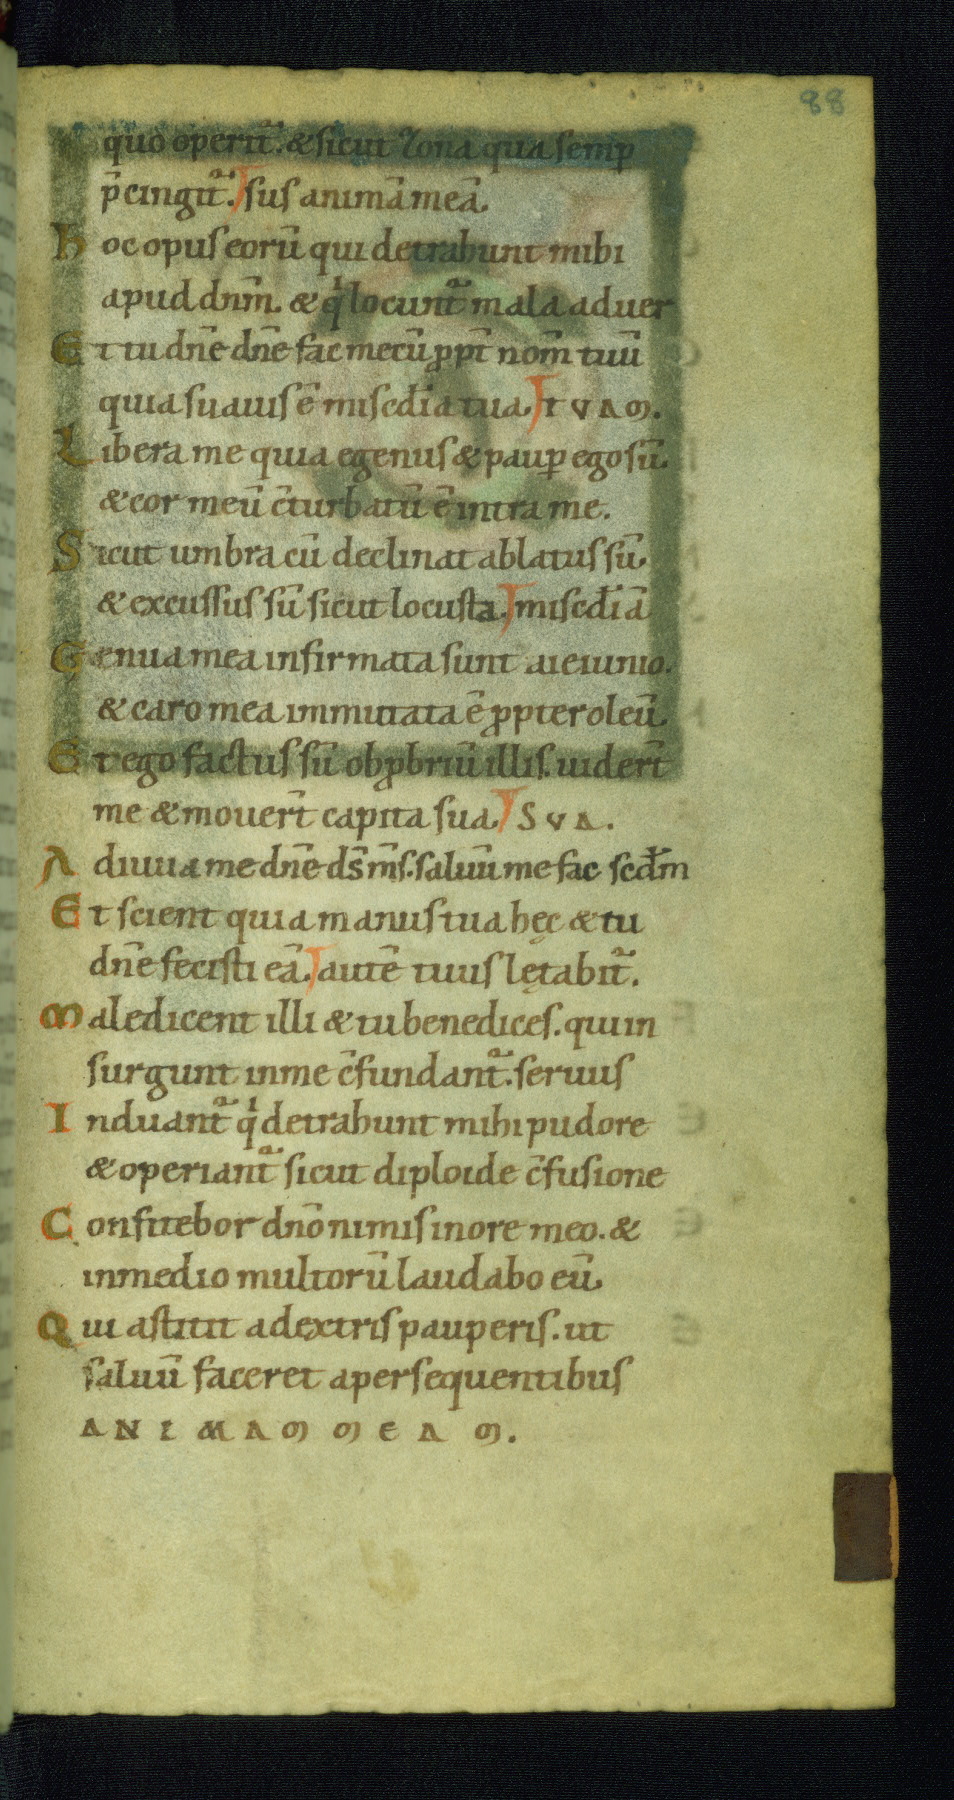 88
quo operit᷑. & sicut zona qua semp̲
p̄cingit᷑. sus animā meā.
Hoc opus eorū qui detrahunt mihi
apud dnm̄. & qͥ locunt᷑ mala aduer
Et tu dnē dnē fac mecū ꝓpt̄ nom̄ tuū
quia suauis ē misc̄dia tua. TVAM.
Libera me quia egenus & paup̲ ego sū.
& cor meū c̄turbatū ē intra me.
Sicut umbra cū declinat ablatus sū.
& excussus sū sicut locusta. misc̄diā
Genua mea infirmata sunt a ieiunio.
& caro mea immutata ē ꝓpter oleū.
Et ego factus sū obꝓbriū illis. uidert̄
me & mouert̄ capita sua. SVA.
Adiuua me dnē ds̄ ms̄. saluū me fac scd̄m
Et scient quia manus tua hęc & tu
dnē fecisti eā. autē tuus lętabit᷑.
Maledicent illi & tu benedices. qui in
surgunt in me c̄fundant᷑. seruus
Induant᷑ qͥ detrahunt mihi pudore
& operiant᷑ sicut diploide c̄fusione
Confitebor dnō nimis in ore meo. &
in medio multorū laudabo eū.
Qui astitit a dextris pauperis. ut
saluū faceret a persequentibus
ANIMAM MEAM.